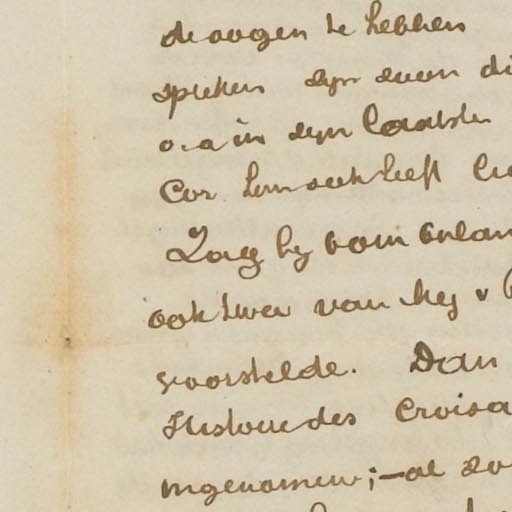 de oogen te hebben
spreken zyn even di
o.a in zyn laatsten
Cor hem ook heeft
Zag hy bom Oulan
ook twee van hey v
voorstelde. Dan
Histoire des Croisa
ingenomen; – al zo